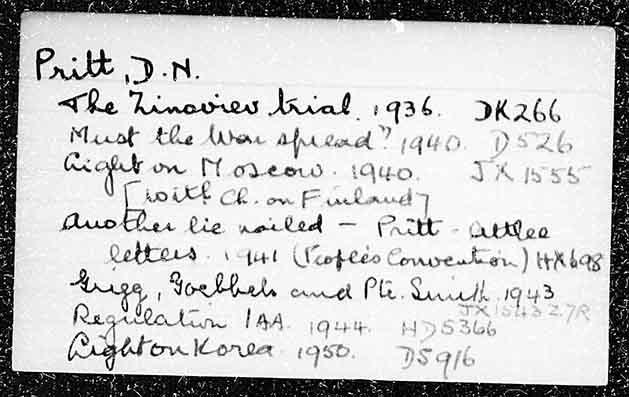 Pritt, D.N.
The Zinoviev trial. 1936. DK266
Must the War spread? 1940. D526
Light on Moscow. 1940. JX1555
[with Ch. on Finland]
Another lie nailed - Pritt - Attlee
letters. 1941 (People's Convention) HX698
Grigg, Goebbels and Pte. Smith. 1943
JX15432.7R
Regulation 1AA. 1944. HD5366
Light on Korea. 1950. DS916